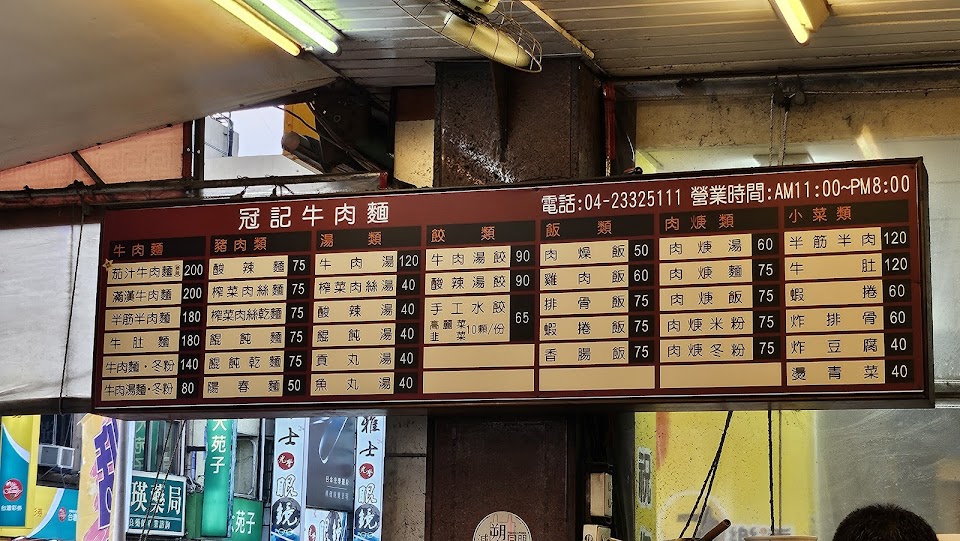 冠記牛肉麵
電話:04-23325111 營業時間:AM11:00~PM8:00
牛肉麵
茄汁牛肉麵 200
滿漢牛肉麵 200
半筋半肉麵 180
牛肚麵 180
牛肉麵·冬粉 140
牛肉湯麵·冬粉 80
豬肉類
酸辣麵 75
榨菜肉絲麵 75
榨菜肉絲乾麵 75
餛飩麵 75
餛飩乾麵 75
陽春麵 50
湯類
牛肉湯 120
榨菜肉絲湯 40
酸辣湯 40
餛飩湯 40
貢丸湯 40
魚丸湯 40
餃類
牛肉湯餃 90
酸辣湯餃 90
手工水餃
高麗菜
韭菜 10顆/份 65
飯類
肉燥飯 50
雞肉飯 60
排骨飯 75
蝦捲飯 75
香腸飯 75
肉焿類
肉焿湯 60
肉焿麵 75
肉焿飯 75
肉焿米粉 75
肉焿冬粉 75
小菜類
半筋半肉 120
牛肚 120
蝦捲 60
炸排骨 60
炸豆腐 40
燙青菜 40
大苑子
苑子
瑛藥局
士眼鏡
雅士眼鏡